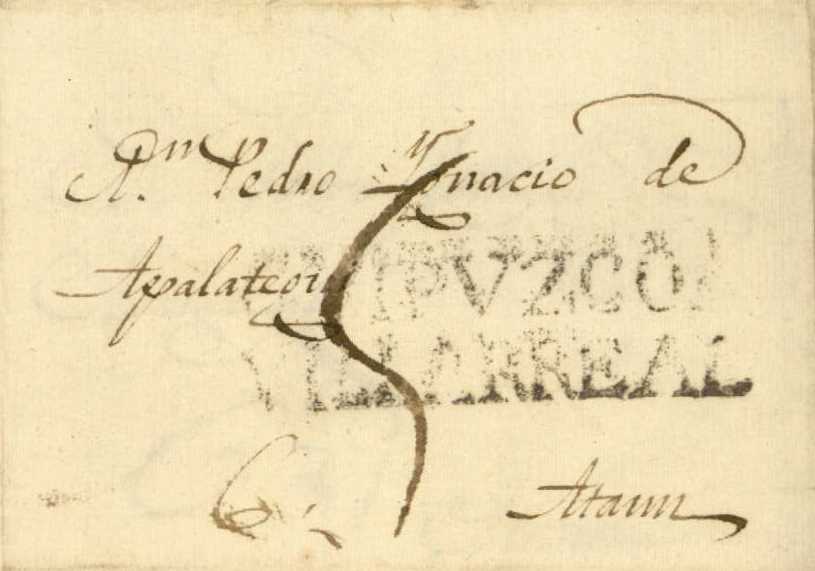 A.n Pedro Ygnacio de
Apalategui
GVIPVZCOA
VILLARREAL
5
Ataun